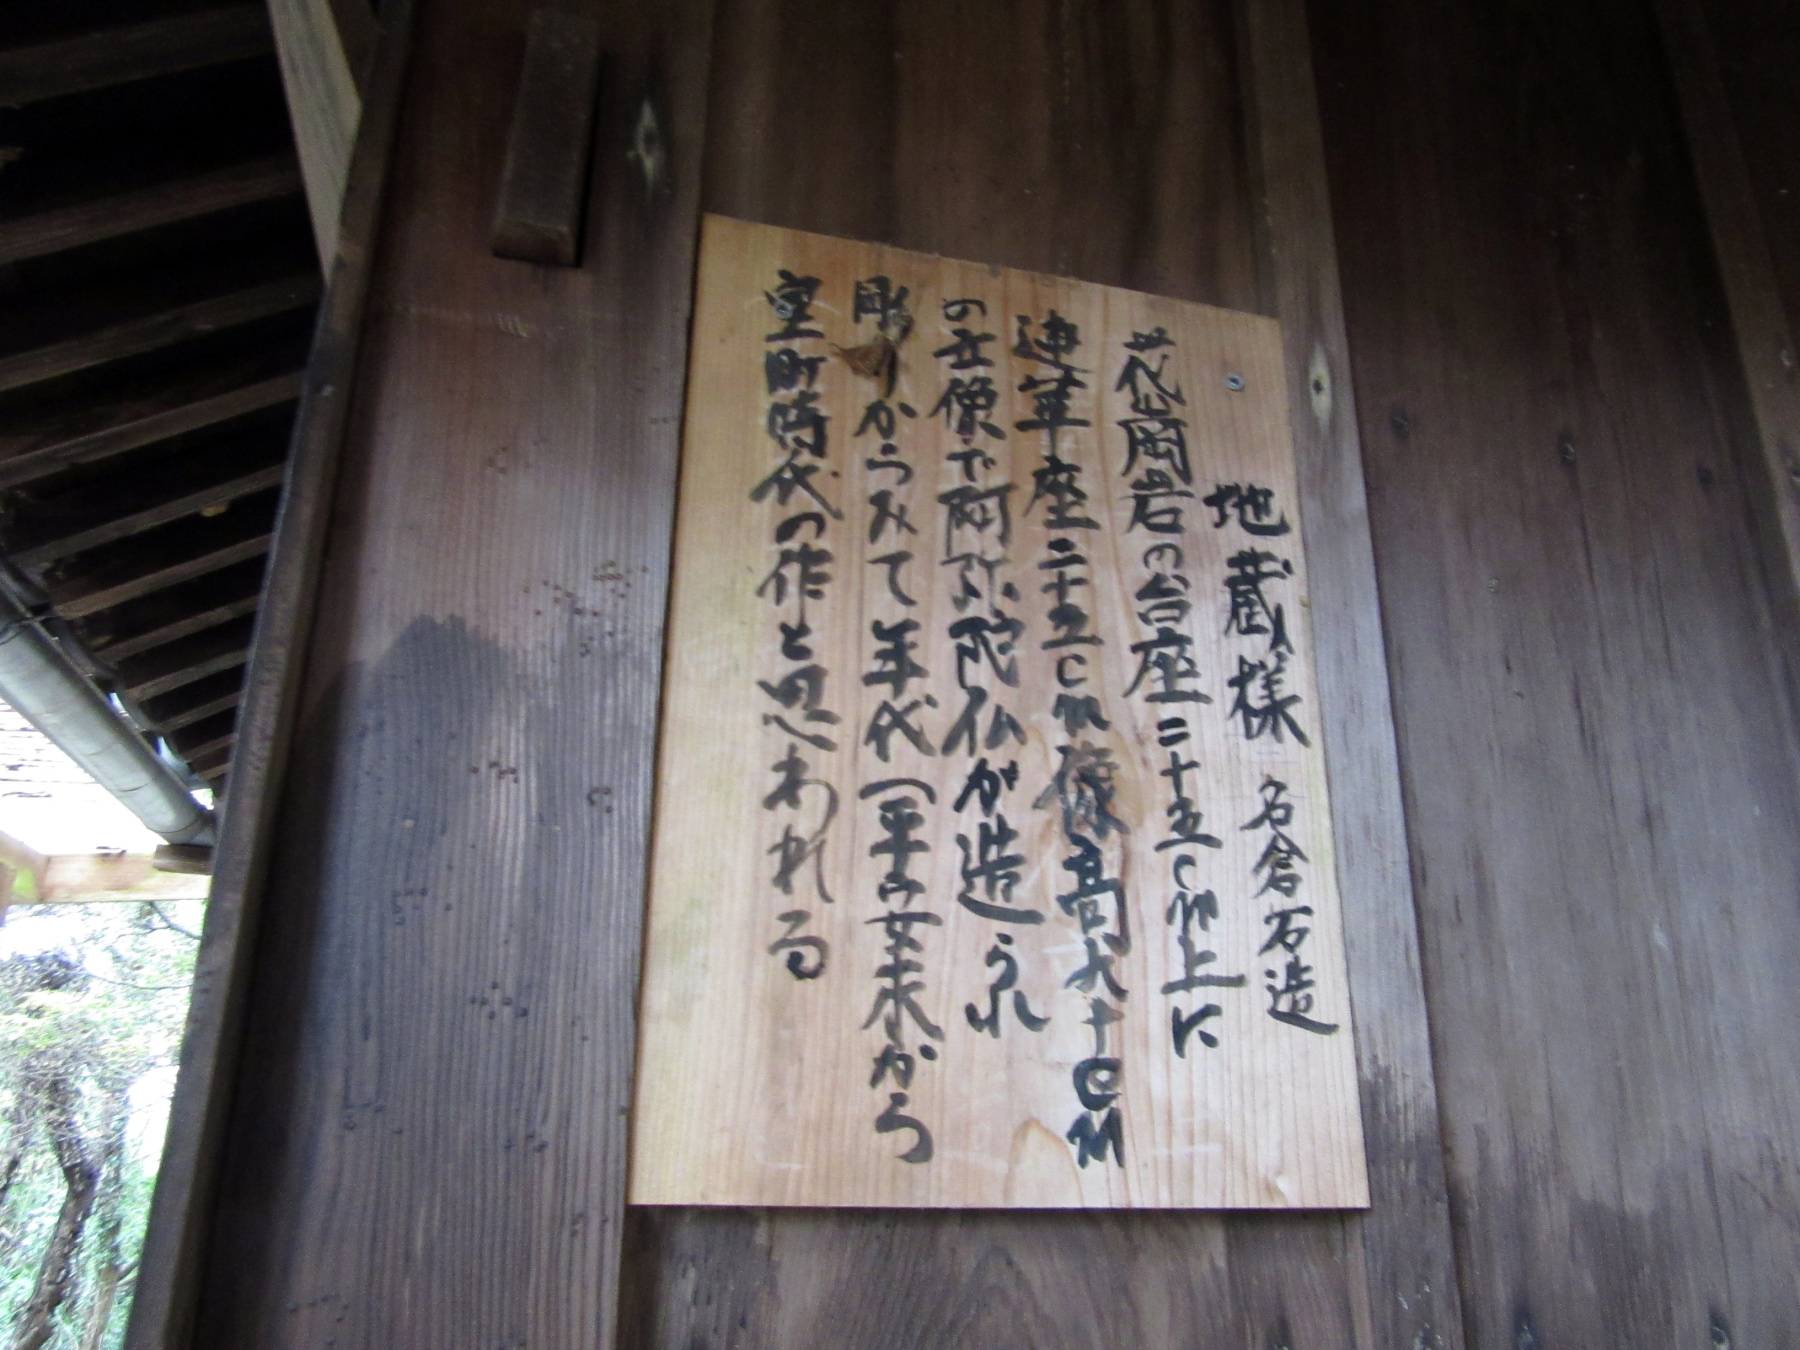 地蔵様 名倉石造
花崗岩の台座二十五cm上に
蓮華座二十五cm像高六十cm
の立像で阿弥陀仏が造られ
彫りからみて年代(平安末から
室町時代の作と思われる